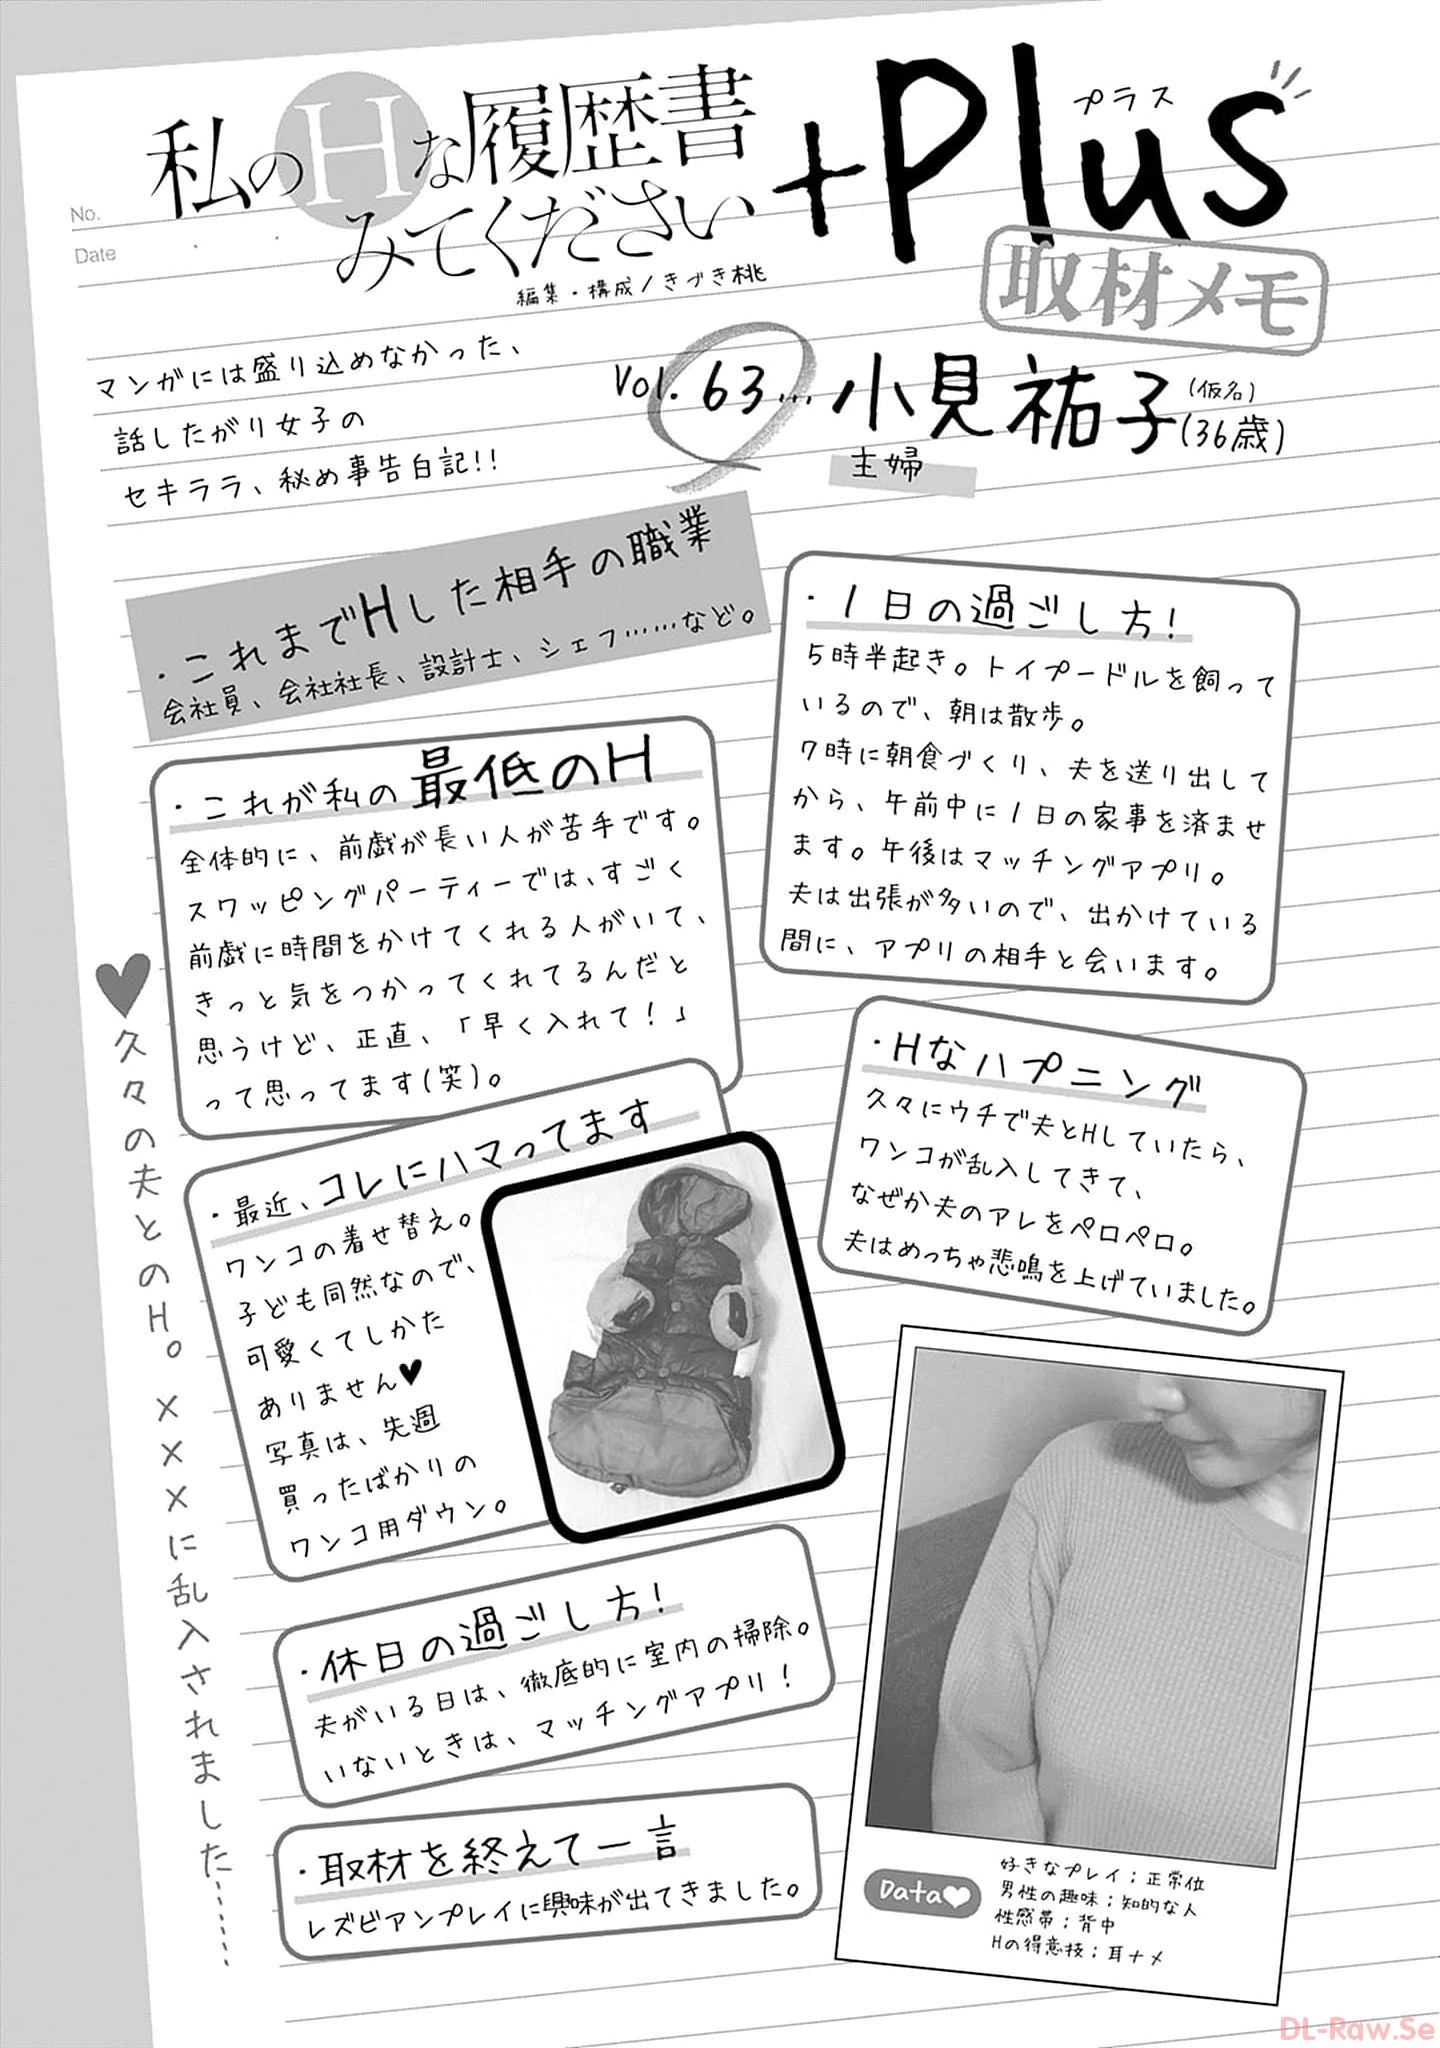 私のHな履歴書
みてください
+Plus
プラス
取材メモ
編集・構成/きづき桃
No.
Date
マンガには盛り込めなかった、
話したがり女子の
セキララ、秘め事告白記!!
Vol.63…小見祐子(仮名)(36歳)
主婦
・これまでHした相手の職業
会社員、会社社長、設計士、シェフ……など。
・1日の過ごし方!
5時半起き。トイプードルを飼って
いるので、朝は散歩。
7時に朝食づくり、夫を送り出して
から、午前中に1日の家事を済ませ
ます。午後はマッチングアプリ。
夫は出張が多いので、出かけている
間に、アプリの相手と会います。
・これが私の最低のH
全体的に、前戯が長い人が苦手です。
スワッピングパーティーでは、すごく
前戯に時間をかけてくれる人がいて、
きっと気をつかってくれてるんだと
思うけど、正直、「早く入れて!」
って思ってます(笑)。
・Hなハプニング
久々にウチで夫とHしていたら、
ワンコが乱入してきて、
なぜか夫のアレをペロペロ。
夫はめっちゃ悲鳴を上げていました。
・最近、コレにハマってます
ワンコの着せ替え。
子ども同然なので、
可愛くてしかた
ありません♥
写真は、先週
買ったばかりの
ワンコ用ダウン。
♥久々の夫とのH。×××に乱入されました……
・休日の過ごし方!
夫がいる日は、徹底的に室内の掃除。
いないときは、マッチングアプリ!
・取材を終えて一言
レズビアンプレイに興味が出てきました。
Data♥
好きなプレイ;正常位
男性の趣味;知的な人
性感帯;背中
Hの得意技;耳ナメ
DL-Raw.Se